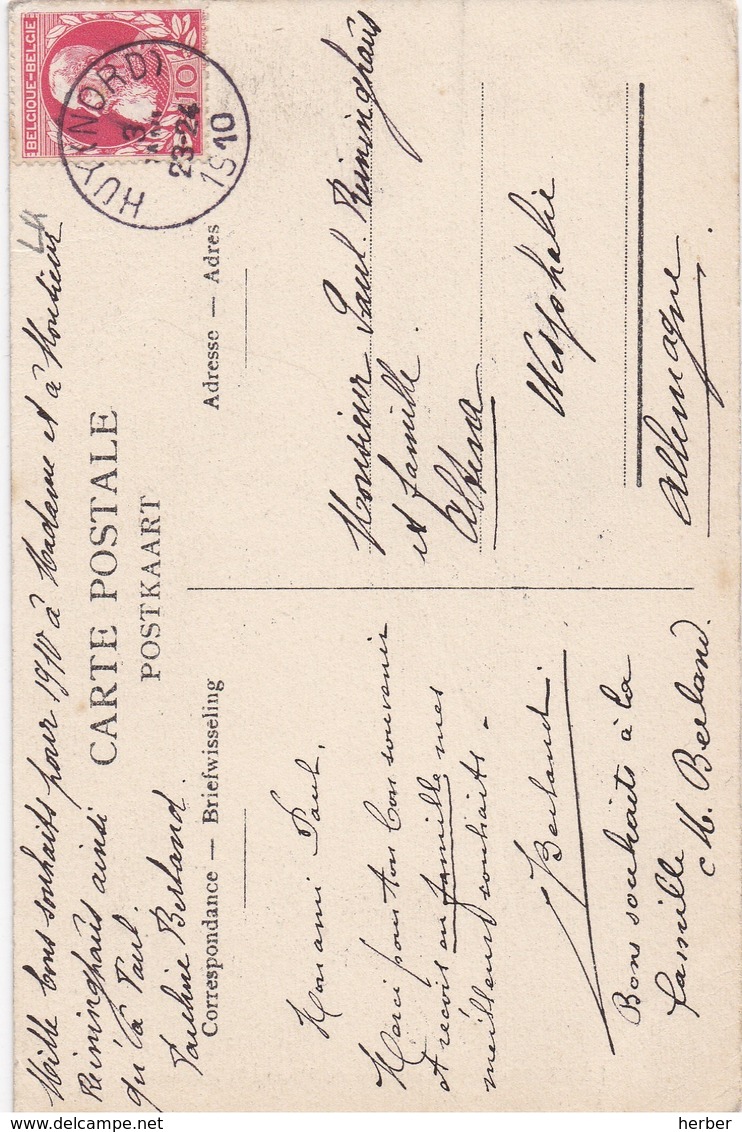 BELGIQUE-BELGIE
10
HUY (NORD)
3
23-24
1910
Mille bons souhaits pour 1910 à Madame et à Monsieur
Reininghaüs ainsi
qu'à Paul.
Pauline Berland.
CARTE POSTALE
POSTKAART
Correspondance — Briefwisseling
Adresse — Adres
Mon ami Paul,
Merci pour ton bon souvenir
et reçois en famille mes
meilleurs souhaits.
Berland
Bons souhaits à la
famille
M. Berland.
Monsieur Paul Reininghaüs
et famille
Altena
Westphalie
Allemagne.
herber